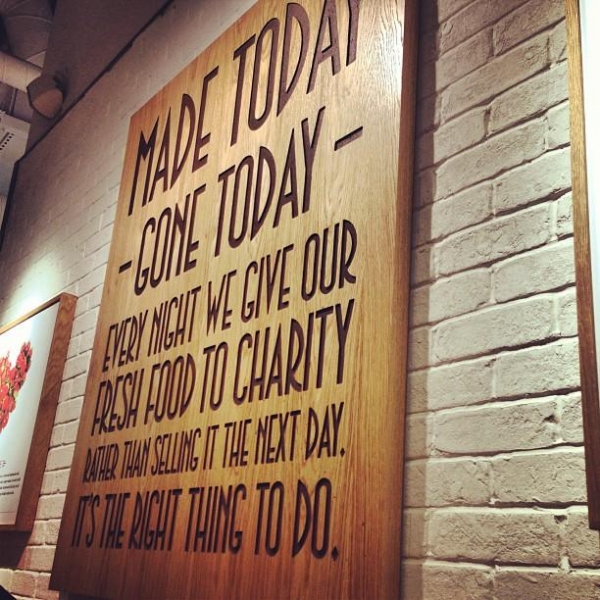 MADE TODAY
- GONE TODAY -
EVERY NIGHT WE GIVE OUR
FRESH FOOD TO CHARITY
RATHER THAN SELLING IT THE NEXT DAY.
IT'S THE RIGHT THING TO DO.